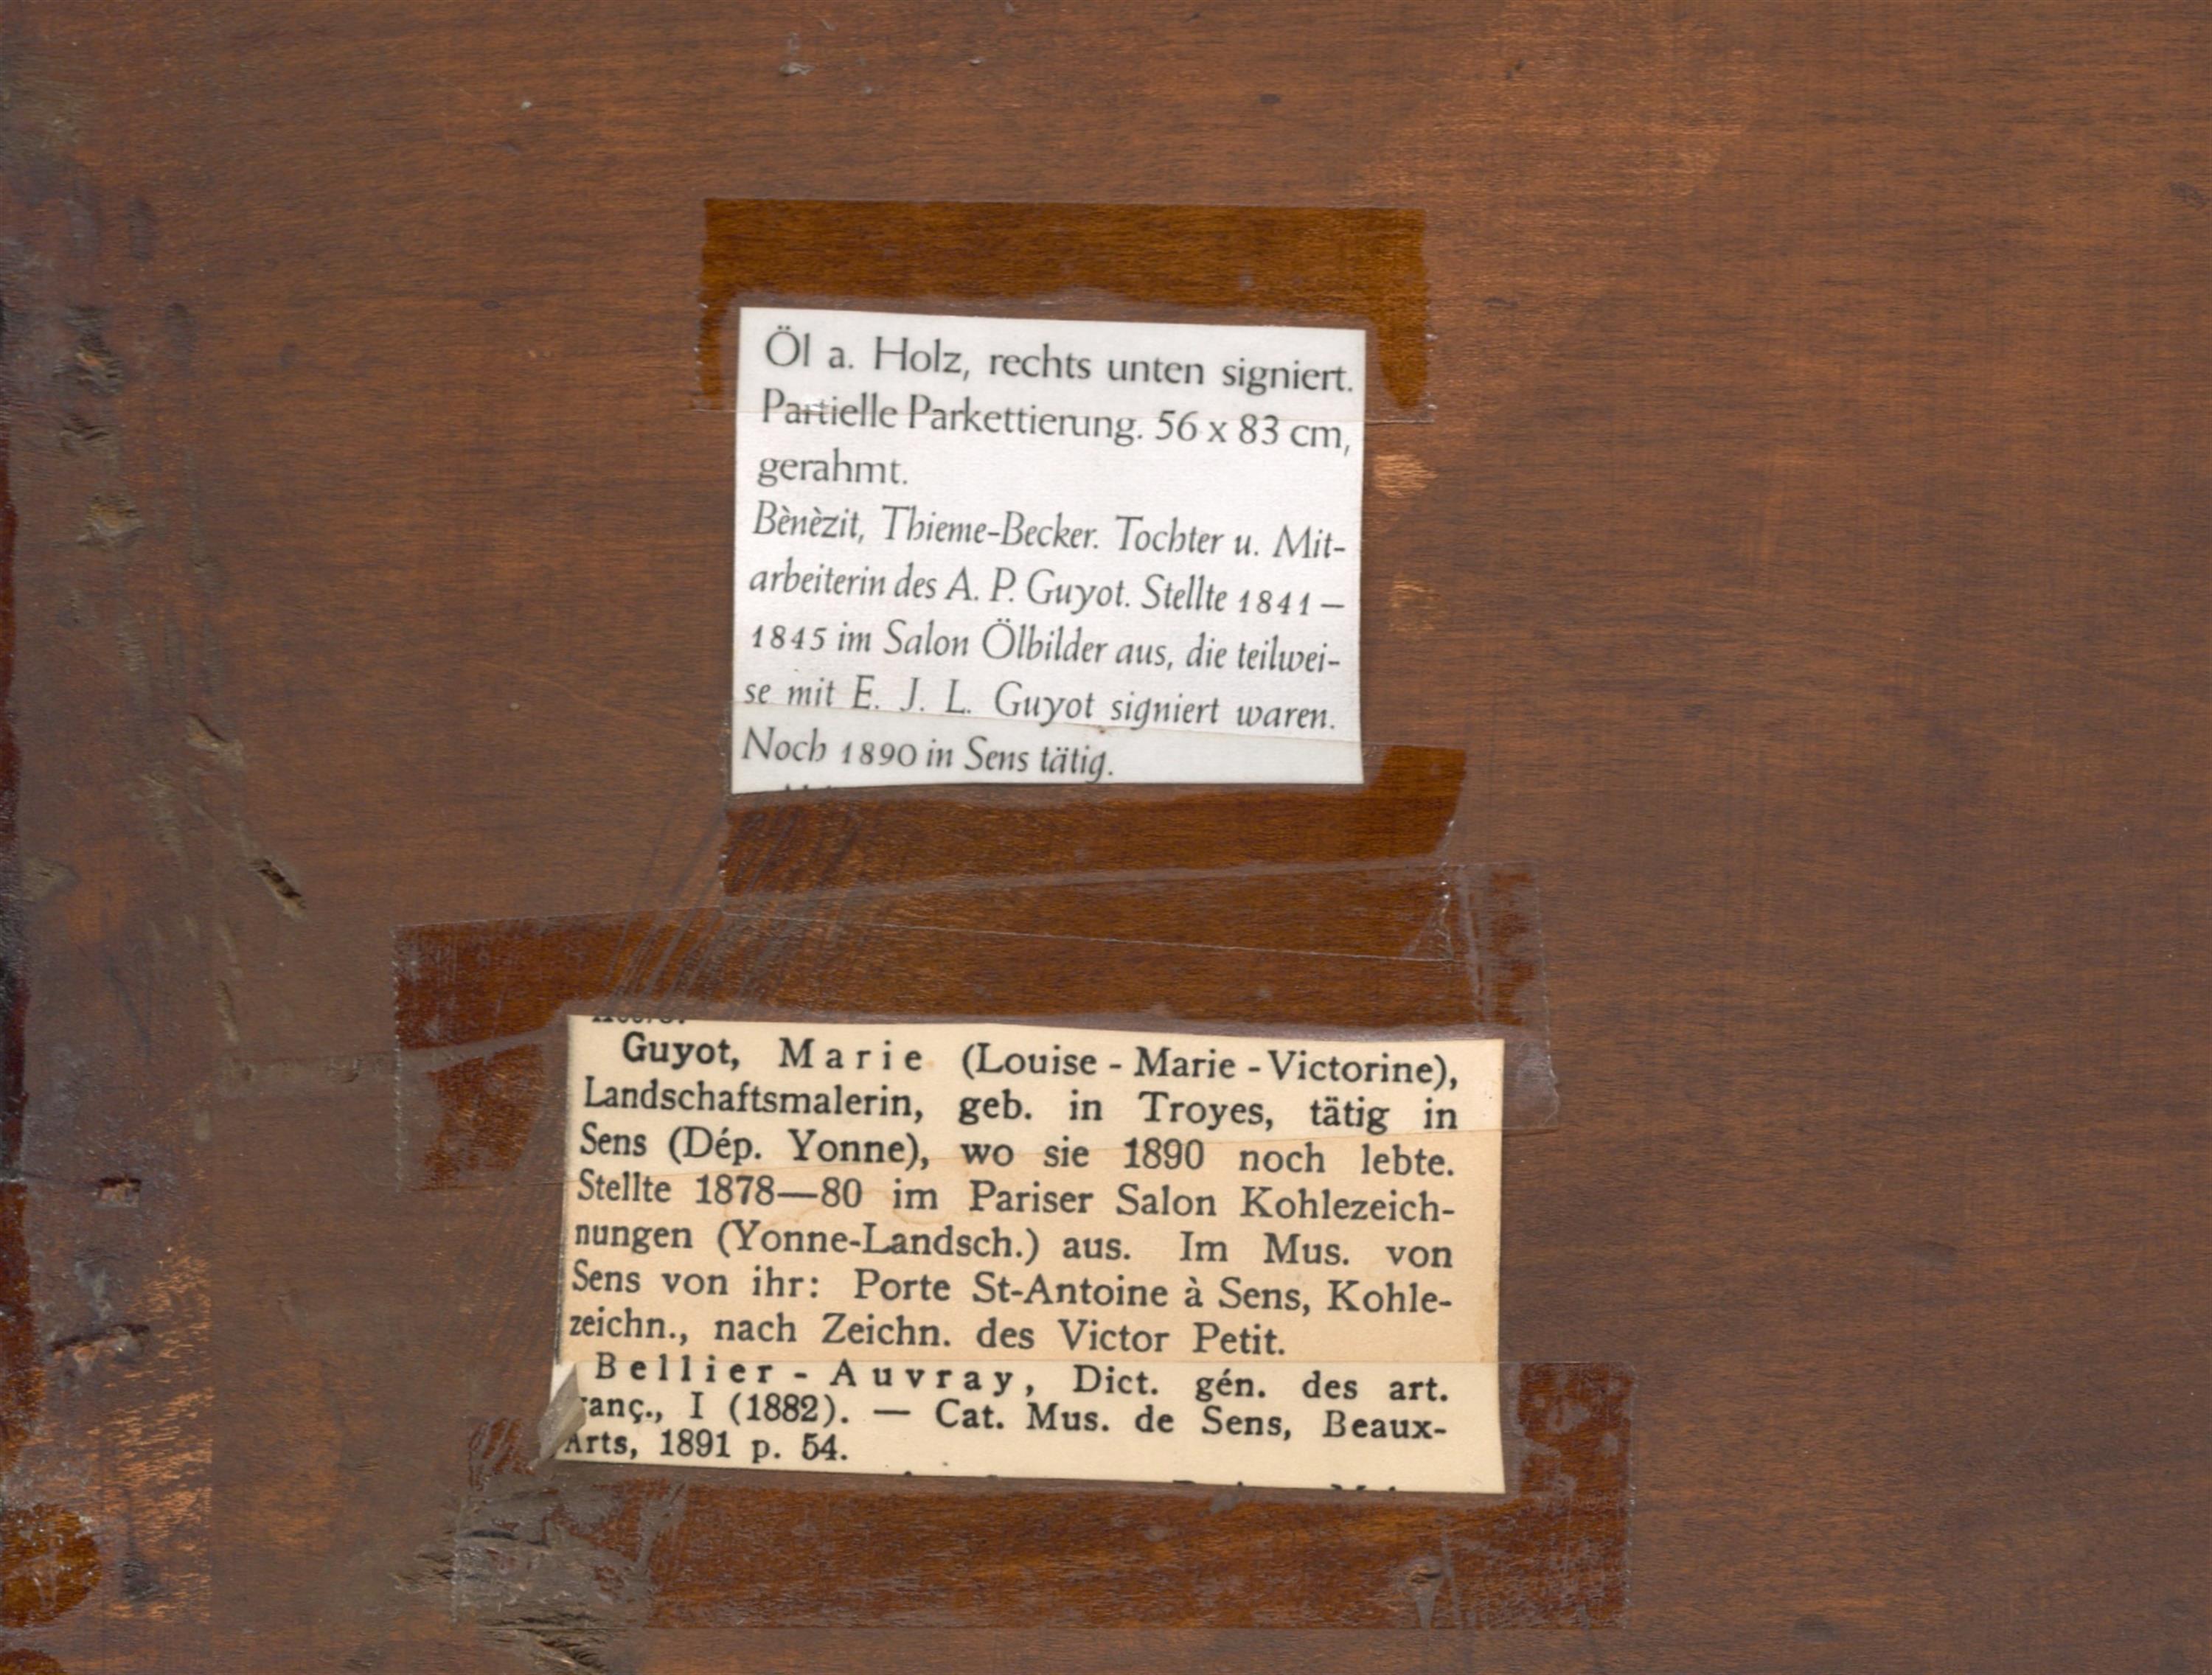 Öl a. Holz, rechts unten signiert.
Partielle Parkettierung. 56 x 83 cm,
gerahmt.
Bènèzit, Thieme-Becker. Tochter u. Mit-
arbeiterin des A. P. Guyot. Stellte 1841 –
1845 im Salon Ölbilder aus, die teilwei-
se mit E. J. L. Guyot signiert waren.
Noch 1890 in Sens tätig.
Guyot, Marie (Louise - Marie - Victorine),
Landschaftsmalerin, geb. in Troyes, tätig in
Sens (Dép. Yonne), wo sie 1890 noch lebte.
Stellte 1878—80 im Pariser Salon Kohlezeich-
nungen (Yonne-Landsch.) aus. Im Mus. von
Sens von ihr: Porte St-Antoine à Sens, Kohle-
zeichn., nach Zeichn. des Victor Petit.
Bellier - Auvray, Dict. gén. des art.
ranç., I (1882). — Cat. Mus. de Sens, Beaux-
Arts, 1891 p. 54.